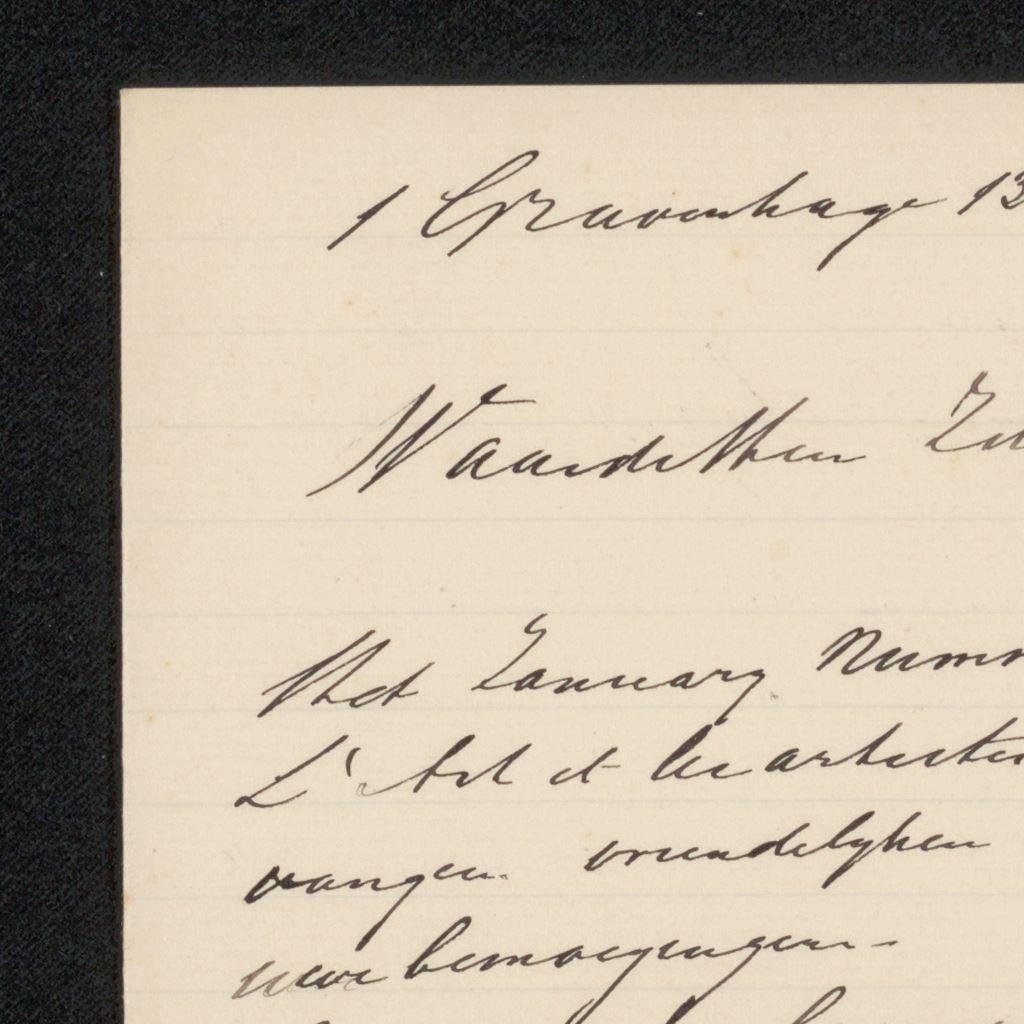 's Gravenhage 13
Waarde Heer
Het January Numm
L'Art et les artistes
vangen. vriendelyken
uwe bemoeyingen -